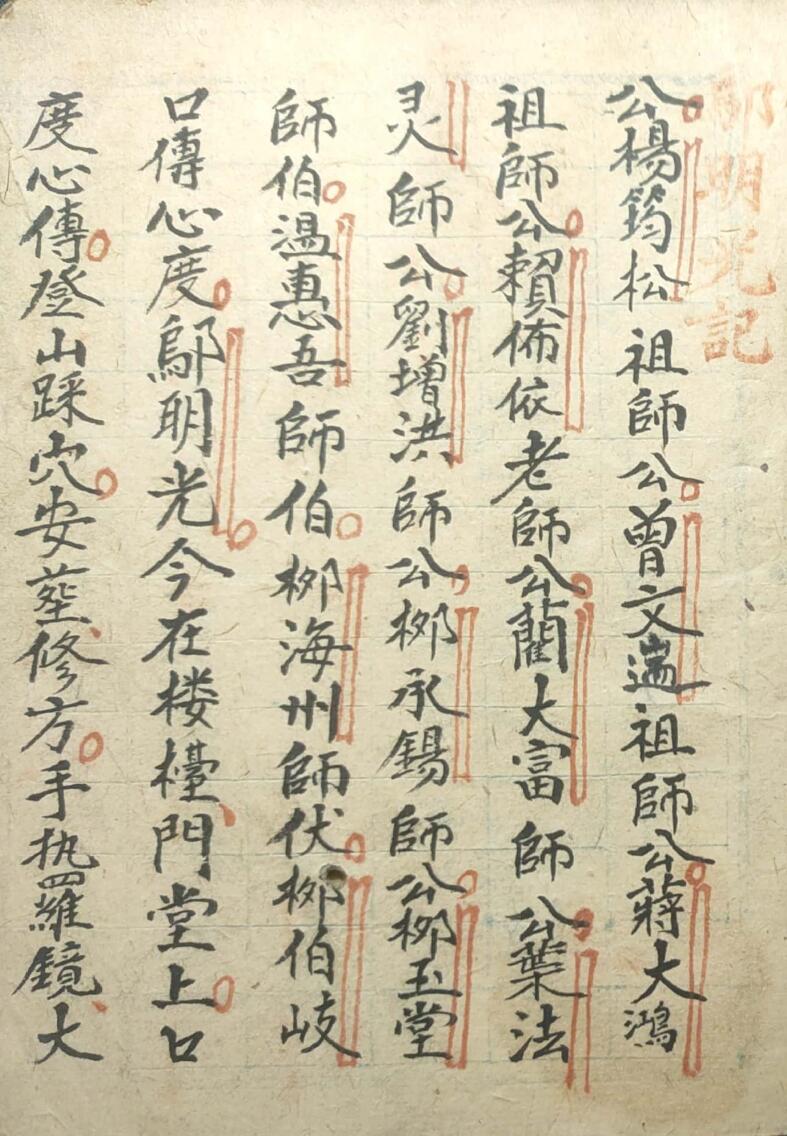 鄔明光記
公楊筠松祖師公曾文遄祖師公蔣大鴻
祖師公賴佈依老師公藺大富師公葉法
灵師公劉增洪師公栁承錫師公栁玉堂
師伯温惠吾師伯栁海州師伏栁伯岐
口傳心度鄔明光今在楼檯門堂上口
度心傳登山踩穴安莝修方手执羅鏡大